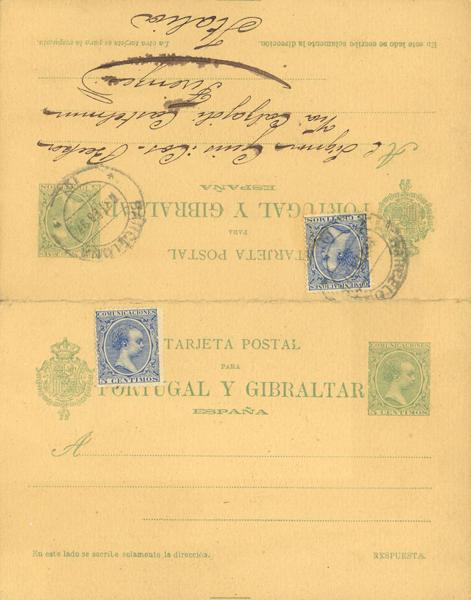 TARJETA POSTAL
PARA
PORTUGAL Y GIBRALTAR
ESPAÑA
A
COMUNICACIONES
5 CENTIMOS
COMUNICACIONES
5 CENTIMOS
En este lado se escribe solamente la dirección.
RESPUESTA.
TARJETA POSTAL
PARA
PORTUGAL Y GIBRALTAR
ESPAÑA
COMUNICACIONES
5 CENTIMOS
BARCELONA
BARCELONA
Al Signor
Via Calzajoli
Firenze
Italia
En este lado se escribe solamente la dirección.
La otra tarjeta es para la respuesta.